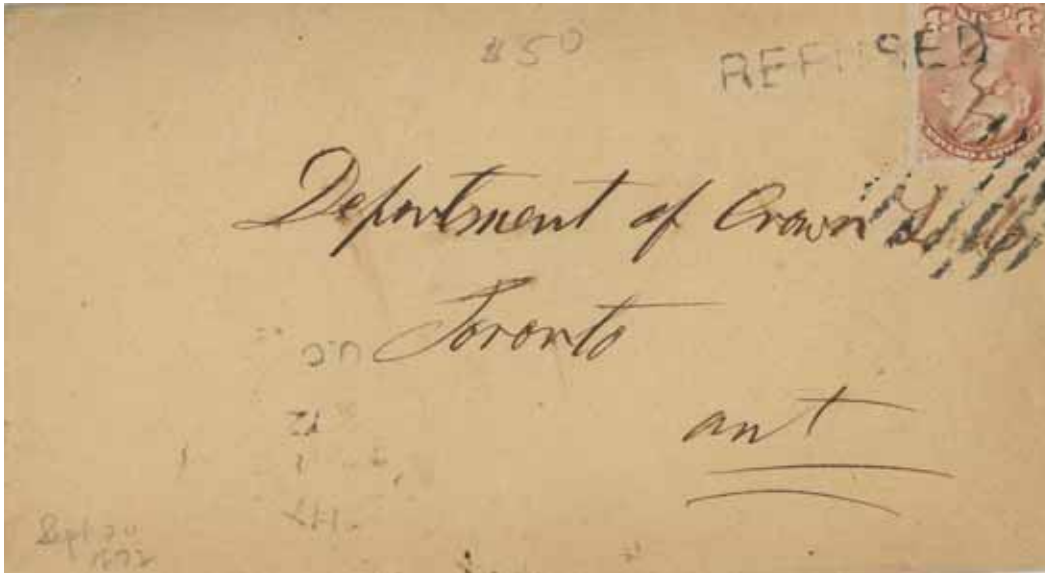 $50
REFUSED
Department of Crown
Toronto
ant
Sept 20
1872